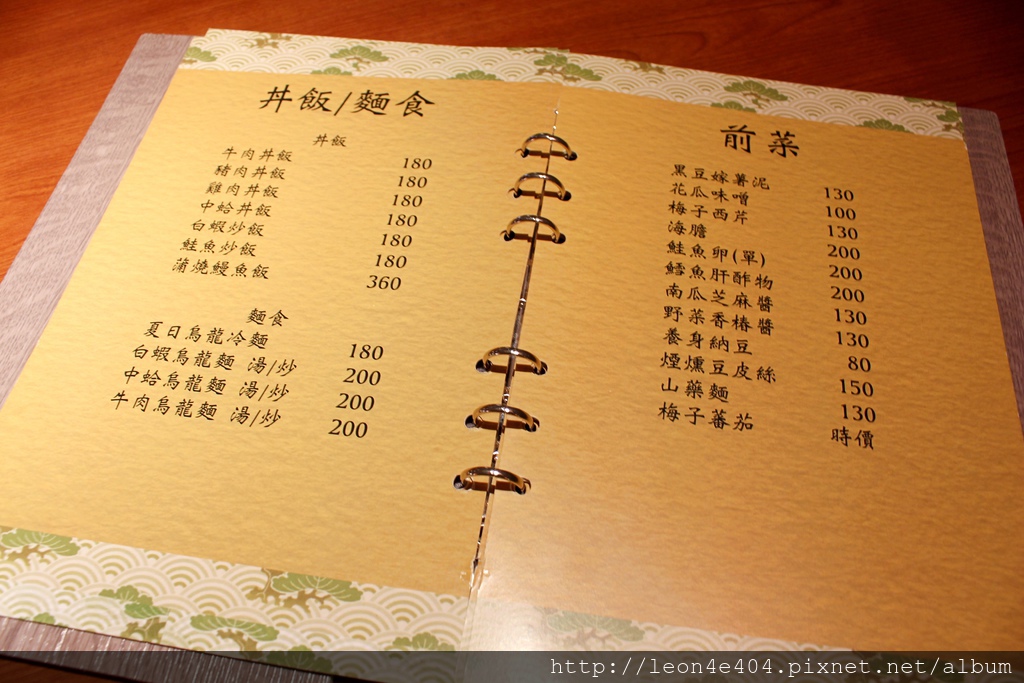 丼飯/麵食
丼飯
牛肉丼飯 180
豬肉丼飯 180
雞肉丼飯 180
中蛤丼飯 180
白蝦炒飯 180
鮭魚炒飯 180
蒲燒鰻魚飯 360
麵食
夏日烏龍冷麵 180
白蝦烏龍麵 湯/炒 200
中蛤烏龍麵 湯/炒 200
牛肉烏龍麵 湯/炒 200
前菜
黑豆嫁薯泥 130
花瓜味噌 100
梅子西芹 130
海膽 200
鮭魚卵(單) 200
鱈魚肝酢物 200
南瓜芝麻醬 130
野菜香椿醬 130
養身納豆 80
煙燻豆皮絲 150
山藥麵 130
梅子蕃茄 時價
http://leon4e404.pixnet.net/album